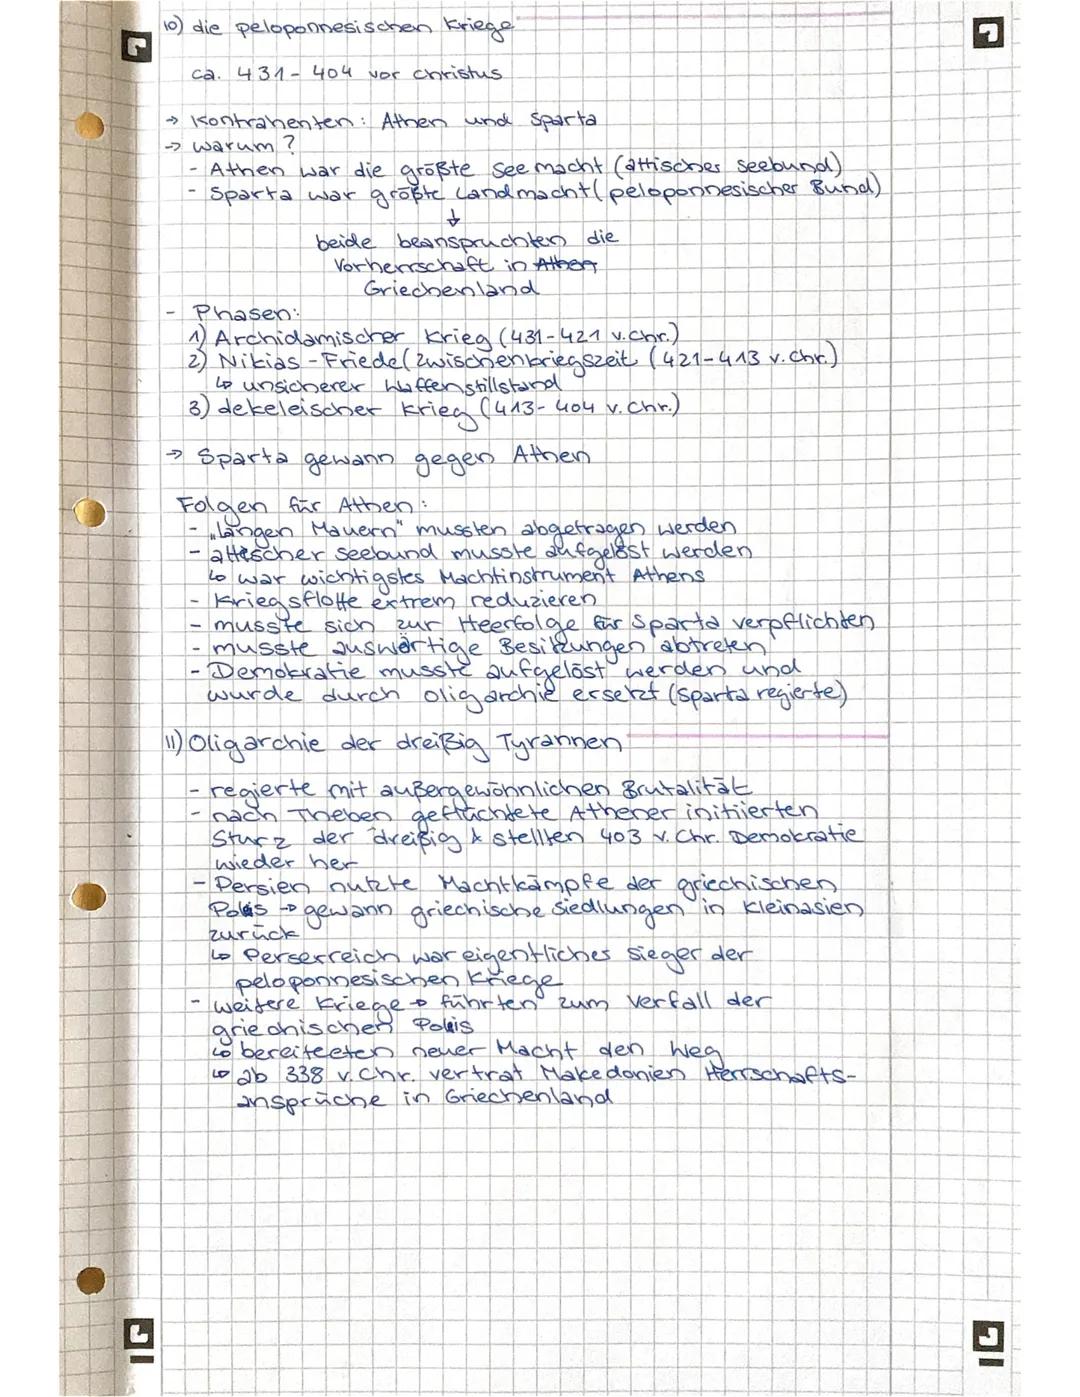 10) die peloponnesischen Kriege
ca. 431 - 404 vor christus
→ Kontrahenten: Athen und Sparta
→ warum?
- Athen war die größte Seemacht (attischer Seebund)
- Sparta war größte Landmacht (peloponnesischer Bund)
↓
beide beanspruchten die
Vorherrschaft in Athen
Griechenland
- Phasen:
1) Archidamischer Krieg (431-421 v.Chr.)
2) Nikias-Friede (zwischenkriegszeit (421-413 v.Chr.)
↳ unsicherer Waffenstillstand
3) dekeleischer Krieg (413-404 v.Chr.)
→ Sparta gewann gegen Athen
Folgen für Athen:
- „langen Mauern" mussten abgetragen werden
- attischer Seebund musste aufgelöst werden
↳ war wichtigstes Machtinstrument Athens
- Kriegsflotte extrem reduzieren
- musste sich zur Heerfolge für Sparta verpflichten
- musste auswärtige Besitzungen abtreten
- Demokratie musste aufgelöst werden und
wurde durch Oligarchie ersetzt (Sparta regierte)
11) Oligarchie der dreißig Tyrannen
- regierte mit außergewöhnlichen Brutalität
- nach Theben geflüchtete Athener initiierten
Sturz der dreißig & stellten 403 v.Chr. Demokratie
wieder her
- Persien nutzte Machtkämpfe der griechischen
Polis → gewann griechische Siedlungen in Kleinasien
zurück
↳ Perserreich war eigentliches Sieger der
peloponnesischen Kriege
- weitere Kriege → führten zum Verfall der
griechischen Polis
↳ bereiteeten neuer Macht den Weg
↳ ab 338 v.Chr. vertrat Makedonien Herrschafts-
ansprüche in Griechenland